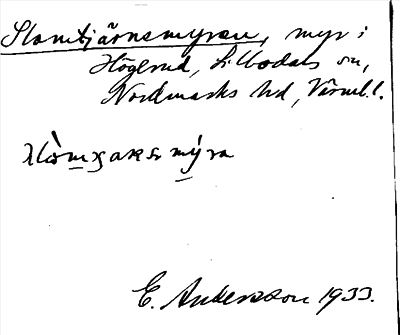 Slomtjärnsmyren, myr i
Högerud, St. Bodals sn,
Nordmarks hd, Värml. l.
mýra
E. Andersson 1933.